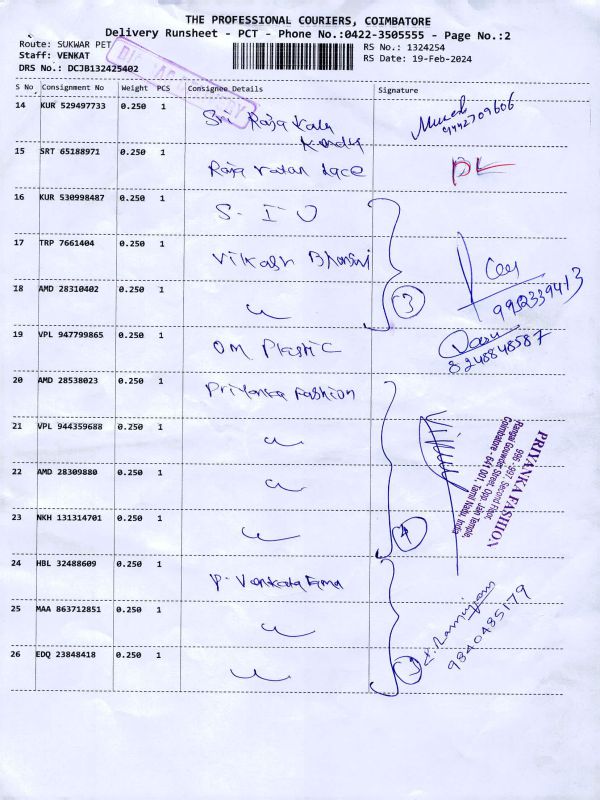 THE PROFESSIONAL COURIERS, COIMBATORE
Delivery Runsheet - PCT - Phone No.:0422-3505555 - Page No.:2
Route: SUKWAR PET
RS No.: 1324254
Staff: VENKAT
RS Date: 19-Feb-2024
DRS No.: DCJB132425402
S No Consignment No Weight PCS Consignee Details Signature
14 KUR 529497733 0.250 1 Sri Raja Kali
9442709606
15 SRT 65188971 0.250 1 Raja ratan Lace
16 KUR 530998487 0.250 1 S. I U
17 TRP 7661404 0.250 1 Vikash Bhansari
18 AMD 28310402 0.250 1 〃 3
9952339413
19 VPL 947799865 0.250 1 OM Plastic
8248848587
20 AMD 28538023 0.250 1 Priyanka Fashion
21 VPL 944359688 0.250 1 〃
22 AMD 28309880 0.250 1 〃
23 NKH 131314701 0.250 1 〃 4
PRIYANKA FASHION
996 -997, Second Floor,
Rangai Gowder Street, Opp. Jain Temple,
Coimbatore - 641 001, Tamil Nadu, India
24 HBL 32488609 0.250 1 P. Venkata Rama
25 MAA 863712851 0.250 1 〃
26 EDQ 23848418 0.250 1 〃
9840485179